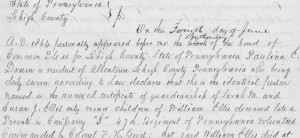 State of Pennsylvania
Lehigh County
On this Fourth day of June
A.D. 1864 personally appeared before me the of the Court of
Common Pleas for Lehigh County State of Pennsylvania Paulina E.
resident of Allentown Lehigh County Pennsylvania who being
duly sworn according to Law declares that she is the identical person
named in the annexed certificate of guardianship of Sarah M. and
Susan J. Ellis only minor children of William Ellis deceased late a
Private in Company "I" 47th Regiment of Pennsylvania Volunteers
commanded by that said William Ellis died at